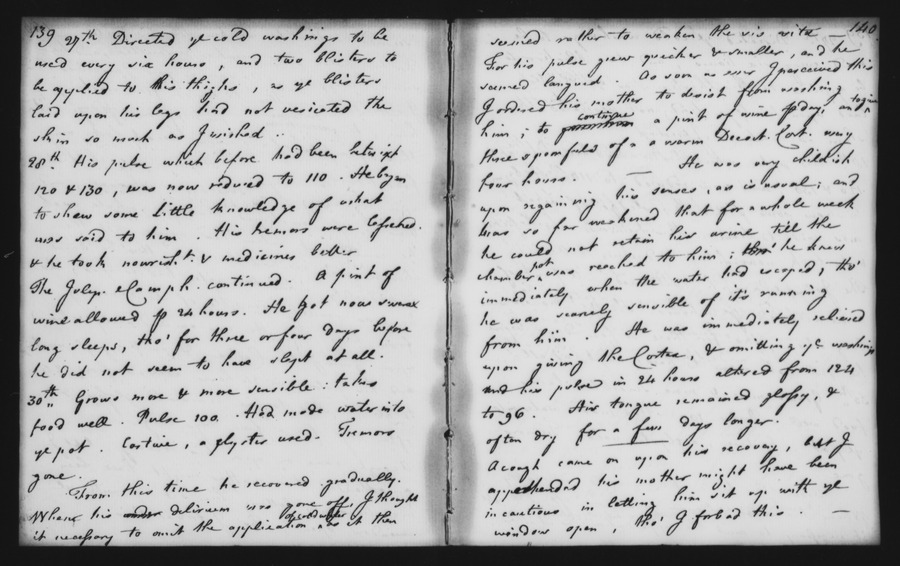 139
27th. Directed ye cold washings to be
used every six hours, and two blisters to
be applied to his thighs, as ye blisters
laid upon his legs had not vesicated the
skin so much as I wished..
28th. His pulse which before had been betwixt
120 & 130, was now reduced to 110. He began
to shew some little knowledge of what
was said to him. His tremors were lessened.
& he took nourisht. & medicines better
The Julep. e Camph. continued. A pint of
wine allowed p 24 hours. He got now &
long sleeps, tho' for three or four Days before
he did not seem to have slept at all.
30th. Grows more & more sensible: takes
food well. Pulse 100. Had made water into
ye pot. Costive, a glyster used. Tremors
gone.
From this time he recovered gradually.
When his delirium was gone off, I thought
it necessary to omit the application of cold water as it then
140
seemed rather to weaken the vis vitæ —
For his pulse grew quicker & smaller, and he
seemed languid. As soon as ever I perceived this
I ordered his mother to desist from washing
him; to continue a pint of wine p day, and to give
three spoonfuls of a warm Decoct. Cort. every
four hours. — He was very childish
upon regaining his senses, as is usual; and
was so far weakened that for a whole week
he could not retain his urine till the
chamber pot was reached to him; tho' he knew
immediately when the water had escaped; tho'
he was scarcely sensible of it's running
from him. He was immediately relieved
upon giving the Cortex, & omitting ye washings
and his pulse in 24 hours altered from 124
to 96. His tongue remained glossy, &
often dry for a few days longer.
A cough came on upon his recovery, but I
apprehended his mother might have been
incautious in letting him sit up with ye
window open, tho' I forbad this. —